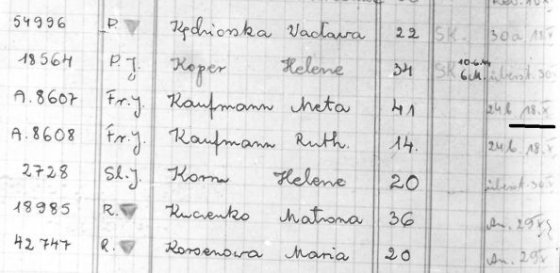 54996 P. Kędziorska Vacława 22 SK. 30a 18.X
18564 P.J. Koper Helene 34 SK 10.6.44 6 M. überst. 30.
A.8607 Fr.J. Kaufmann Meta 41 24b 18.X
A.8608 Fr.J. Kaufmann Ruth. 14. 24b 18.X
2728 Sl.J. Korn Helene 20 überst. 30.
18985 R. Kucenko Matrona 36 An. 29.X
42747 R. Korsenowa Maria 20 An. 29.X